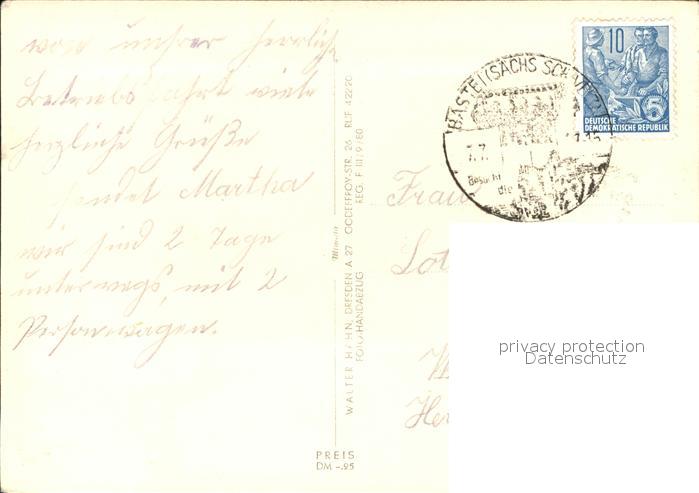 von unsrer herrlich
Betriebsfahrt viele
herzliche Grüße
sendet Martha
wir sind 2 Tage
unterwegs, mit 2
Personenwagen.
WALTER HAHN, DRESDEN A 27 GODEFFROY-STR. 26 RUF 42220
FOTO-HANDABZUG REG. F III/9/60
PREIS
DM -.95
BASTEI (SÄCHS SCHWEIZ)
7.7.
Besucht
die
10
5
DEUTSCHE
DEMOKRATISCHE REPUBLIK
Frau
privacy protection
Datenschutz